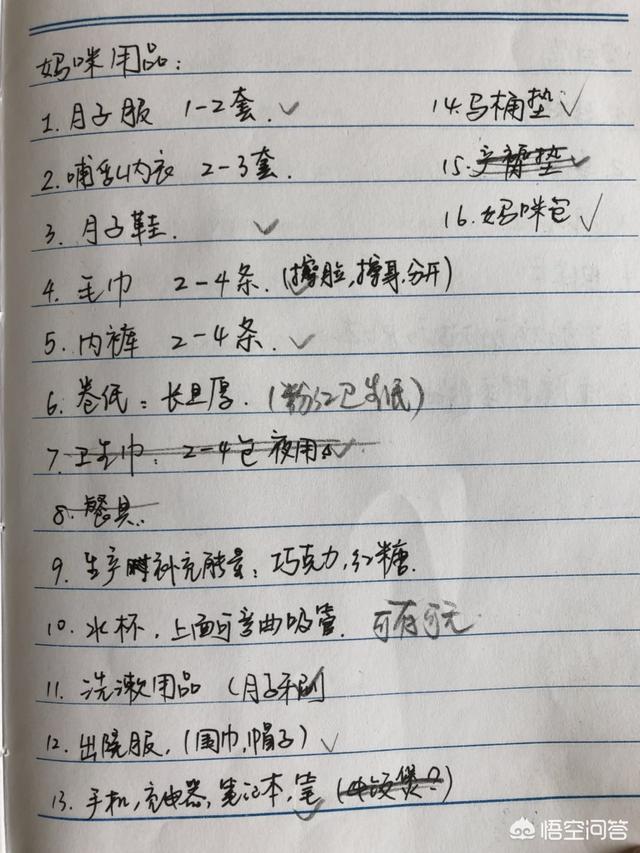 妈咪用品:
1. 月子服 1-2套. ✓
2. 哺乳内衣 2-3套.
3. 月子鞋. ✓
4. 毛巾 2-4条. (擦脸,擦身,分开)
5. 内裤 2-4条. ✓
6. 卷纸: 长且厚. (粉红卫生纸)
7. 卫生巾: 2-4包 夜用 ✓
8. 餐具..
9. 生产时补充能量: 巧克力,红糖.
10. 水杯, 上面可弯曲吸管. 可有可无
11. 洗漱用品 (月子牙刷
12. 出院服, (围巾,帽子) ✓
13. 手机,充电器,笔记本,笔 (电饭煲?)
14. 马桶垫 ✓
15. 产褥垫 ✓
16. 妈咪包 ✓
悟空问答